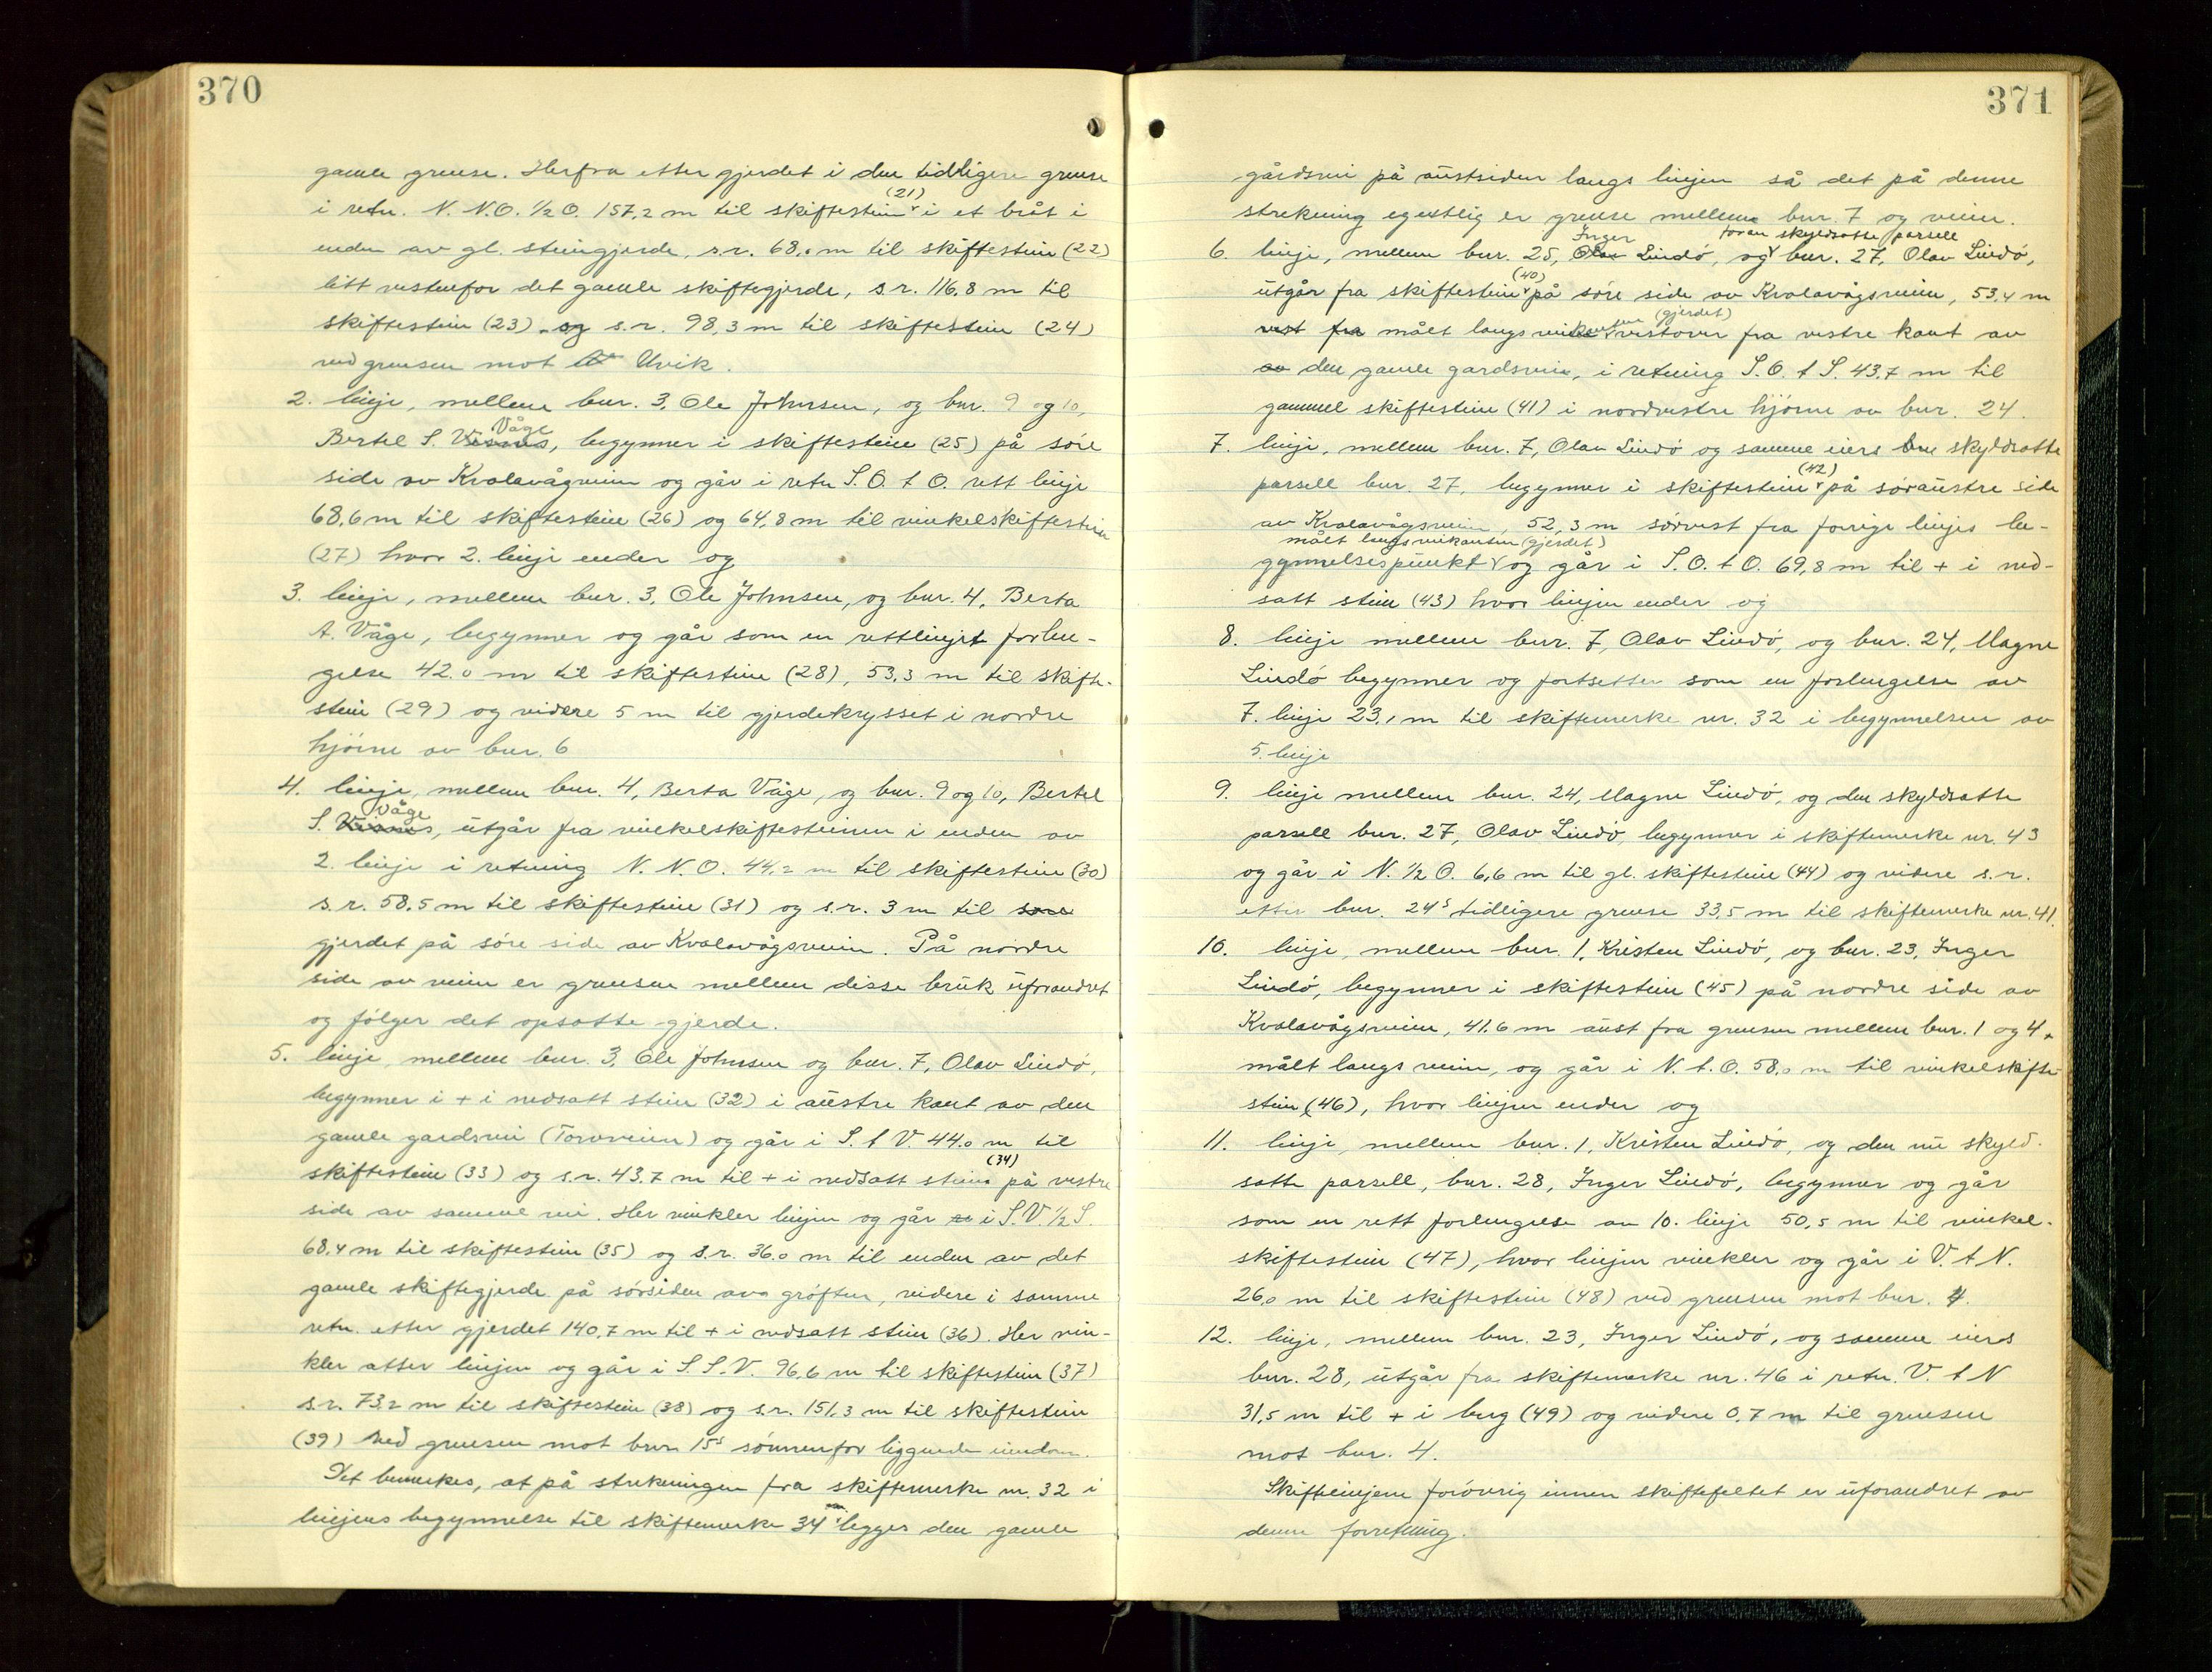 370
gamle grense. Herfra etter gjerdet i den tidligere grense
(21)
i retn. N.N.O. 1/2 O. 157,2 m til skiftestein i et bråt i
enden av gl. steingjerde, s.r. 68,0 m til skiftestein (22)
litt vestenfor det gamle skiftegjerde, s.r. 116,8 m til
skiftestein (23) og s.r. 98,3 m til skiftestein (24)
ved grensen mot Utvik.
2. linje, mellem bnr. 3, Ole Johnsen, og bnr. 9 og 10,
Våge
Bertel S. Visnes, begynner i skiftestein (25) på søre
side av Kvalavågveien og går i retn S.O. t O. rett linje
68,6 m til skiftestein (26) og 64,8 m til vinkelskiftestein
(27) hvor 2. linje ender og
3. linje, mellem bnr. 3, Ole Johnsen, og bnr. 4, Berta
A. Våge, begynner og går som en rettlinjet forlen-
gelse 42,0 m til skiftestein (28), 53,3 m til skifte-
stein (29) og videre 5 m til gjerdekrysset i nordre
hjørne av bnr. 6
4. linje, mellem bnr. 4, Berta Våge, og bnr. 9 og 10, Bertel
Våge
S. Visnes, utgår fra vinkelskiftesteinen i enden av
2. linje i retning N.N.O. 44,2 m til skiftestein (30)
s.r. 58,5 m til skiftestein (31) og s.r. 3 m til søre
gjerdet på søre side av Kvalavågsveien. På nordre
side av veien er grensen mellem disse bruk uforandret
og følger det opsatte gjerde.
5. linje, mellem bnr. 3, Ole Johnsen og bnr. 7, Olav Lindø,
begynner i + i nedsatt stein (32) i austre kant av den
gamle gardsvei (Torvveien) og går i S. t V. 44,0 m til
(34)
skiftestein (33) og s.r. 43,7 m til + i nedsatt stein på vestre
side av samme vei. Her vinkler linjen og går i S.V. 1/2 S.
68,4 m til skiftestein (35) og s.r. 36,0 m til enden av det
gamle skiftegjerde på sørsiden av grøften, videre i samme
retn. etter gjerdet 140,7 m til + i nedsatt stein (36). Her vin-
kler atter linjen og går i S.S.V. 96,6 m til skiftestein (37)
s.r. 73,2 m til skiftestein (38) og s.r. 151,3 m til skiftestein
(39) ved grensen mot bnr. 15s sønnenfor liggende eiendom.
Det bemerkes, at på strekningen fra skiftemerke nr. 32 i
linjens begynnelse til skiftemerke 34 legges den gamle
371
gårdsvei på austsiden langs linjen så det på denne
strekning egentlig er grense mellem bnr. 7 og veien.
Inger foran skyldsatte parsell
6. linje, mellem bnr. 25, Olav Lindø, og bnr. 27, Olav Lindø,
(40)
utgår fra skiftestein på søre side av Kvalavågsveien, 53,4 m
(gjerdet)
vest fra målt langs veikanten vestover fra vestre kant av
av den gamle gardsvei, i retning S.O. t S. 43,7 m til
gammel skiftestein (41) i nordvestre hjørne av bnr. 24.
7. linje, mellem bnr. 7, Olav Lindø og samme eiers skyldsatte
(42)
parsell bnr. 27, begynner i skiftestein på søraustre side
av Kvalavågsveien, 52,3 m sørvest fra forrige linjes be-
målt langs veikanten (gjerdet)
gynnelsespunkt og går i S.O. t O. 69,8 m til + i ned-
satt stein (43) hvor linjen ender og
8. linje mellem bnr. 7, Olav Lindø, og bnr. 24, Magne
Lindø begynner og fortsetter som en forlengelse av
7. linje 23,1 m til skiftemerke nr. 32 i begynnelsen av
5. linje
9. linje mellem bnr. 24, Magne Lindø, og den skyldsatte
parsell bnr. 27, Olav Lindø, begynner i skiftemerke nr. 43
og går i N. 1/2 O. 6,6 m til gl. skiftestein (44) og videre s.r.
etter bnr. 24s tidligere grense 33,5 m til skiftemerke nr. 41.
10. linje, mellem bnr. 1, Kristen Lindø, og bnr. 23, Inger
Lindø, begynner i skiftestein (45) på nordre side av
Kvalavågsveien, 41,6 m aust fra grensen mellem bnr. 1 og 4,
målt langs veien, og går i N. t. O. 58,0 m til vinkelskifte-
stein (46), hvor linjen ender og
11. linje, mellem bnr. 1, Kristen Lindø, og den nu skyld-
satte parsell, bnr. 28, Inger Lindø, begynner og går
som en rett forlengelse av 10. linje 50,5 m til vinkel-
skiftestein (47), hvor linjen vinkler og går i V. t N.
26,0 m til skiftestein (48) ved grensen mot bnr. 4.
12. linje, mellem bnr. 23, Inger Lindø, og samme eiers
bnr. 28, utgår fra skiftemerke nr. 46 i retn. V. t N
31,5 m til + i berg (49) og videre 0,7 m til grensen
mot bnr. 4.
Skiftelinjene forøvrig innen skiftefeltet er uforandret av
denne forretning.